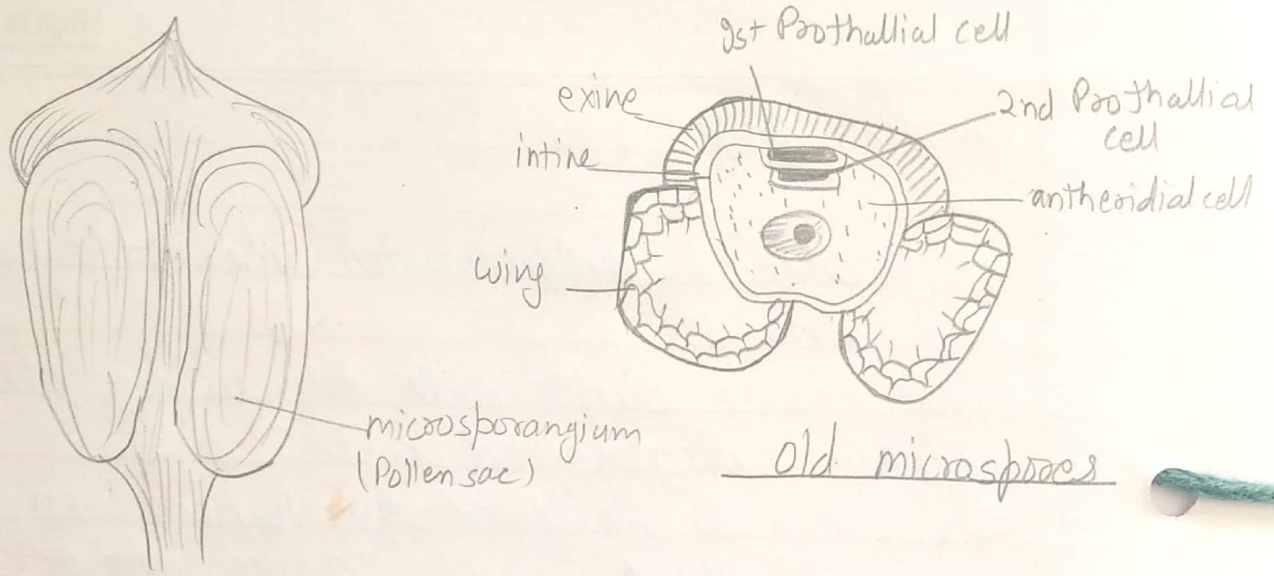 1st Prothallial cell
exine
2nd Prothallial
cell
intine
antheridial cell
wing
microsporangium
(Pollen sac)
old microspores